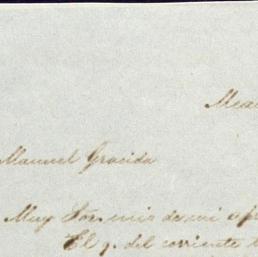 Mexi
Manuel Gracida
Muy Sor. mio de mi ap
El 9. del corriente